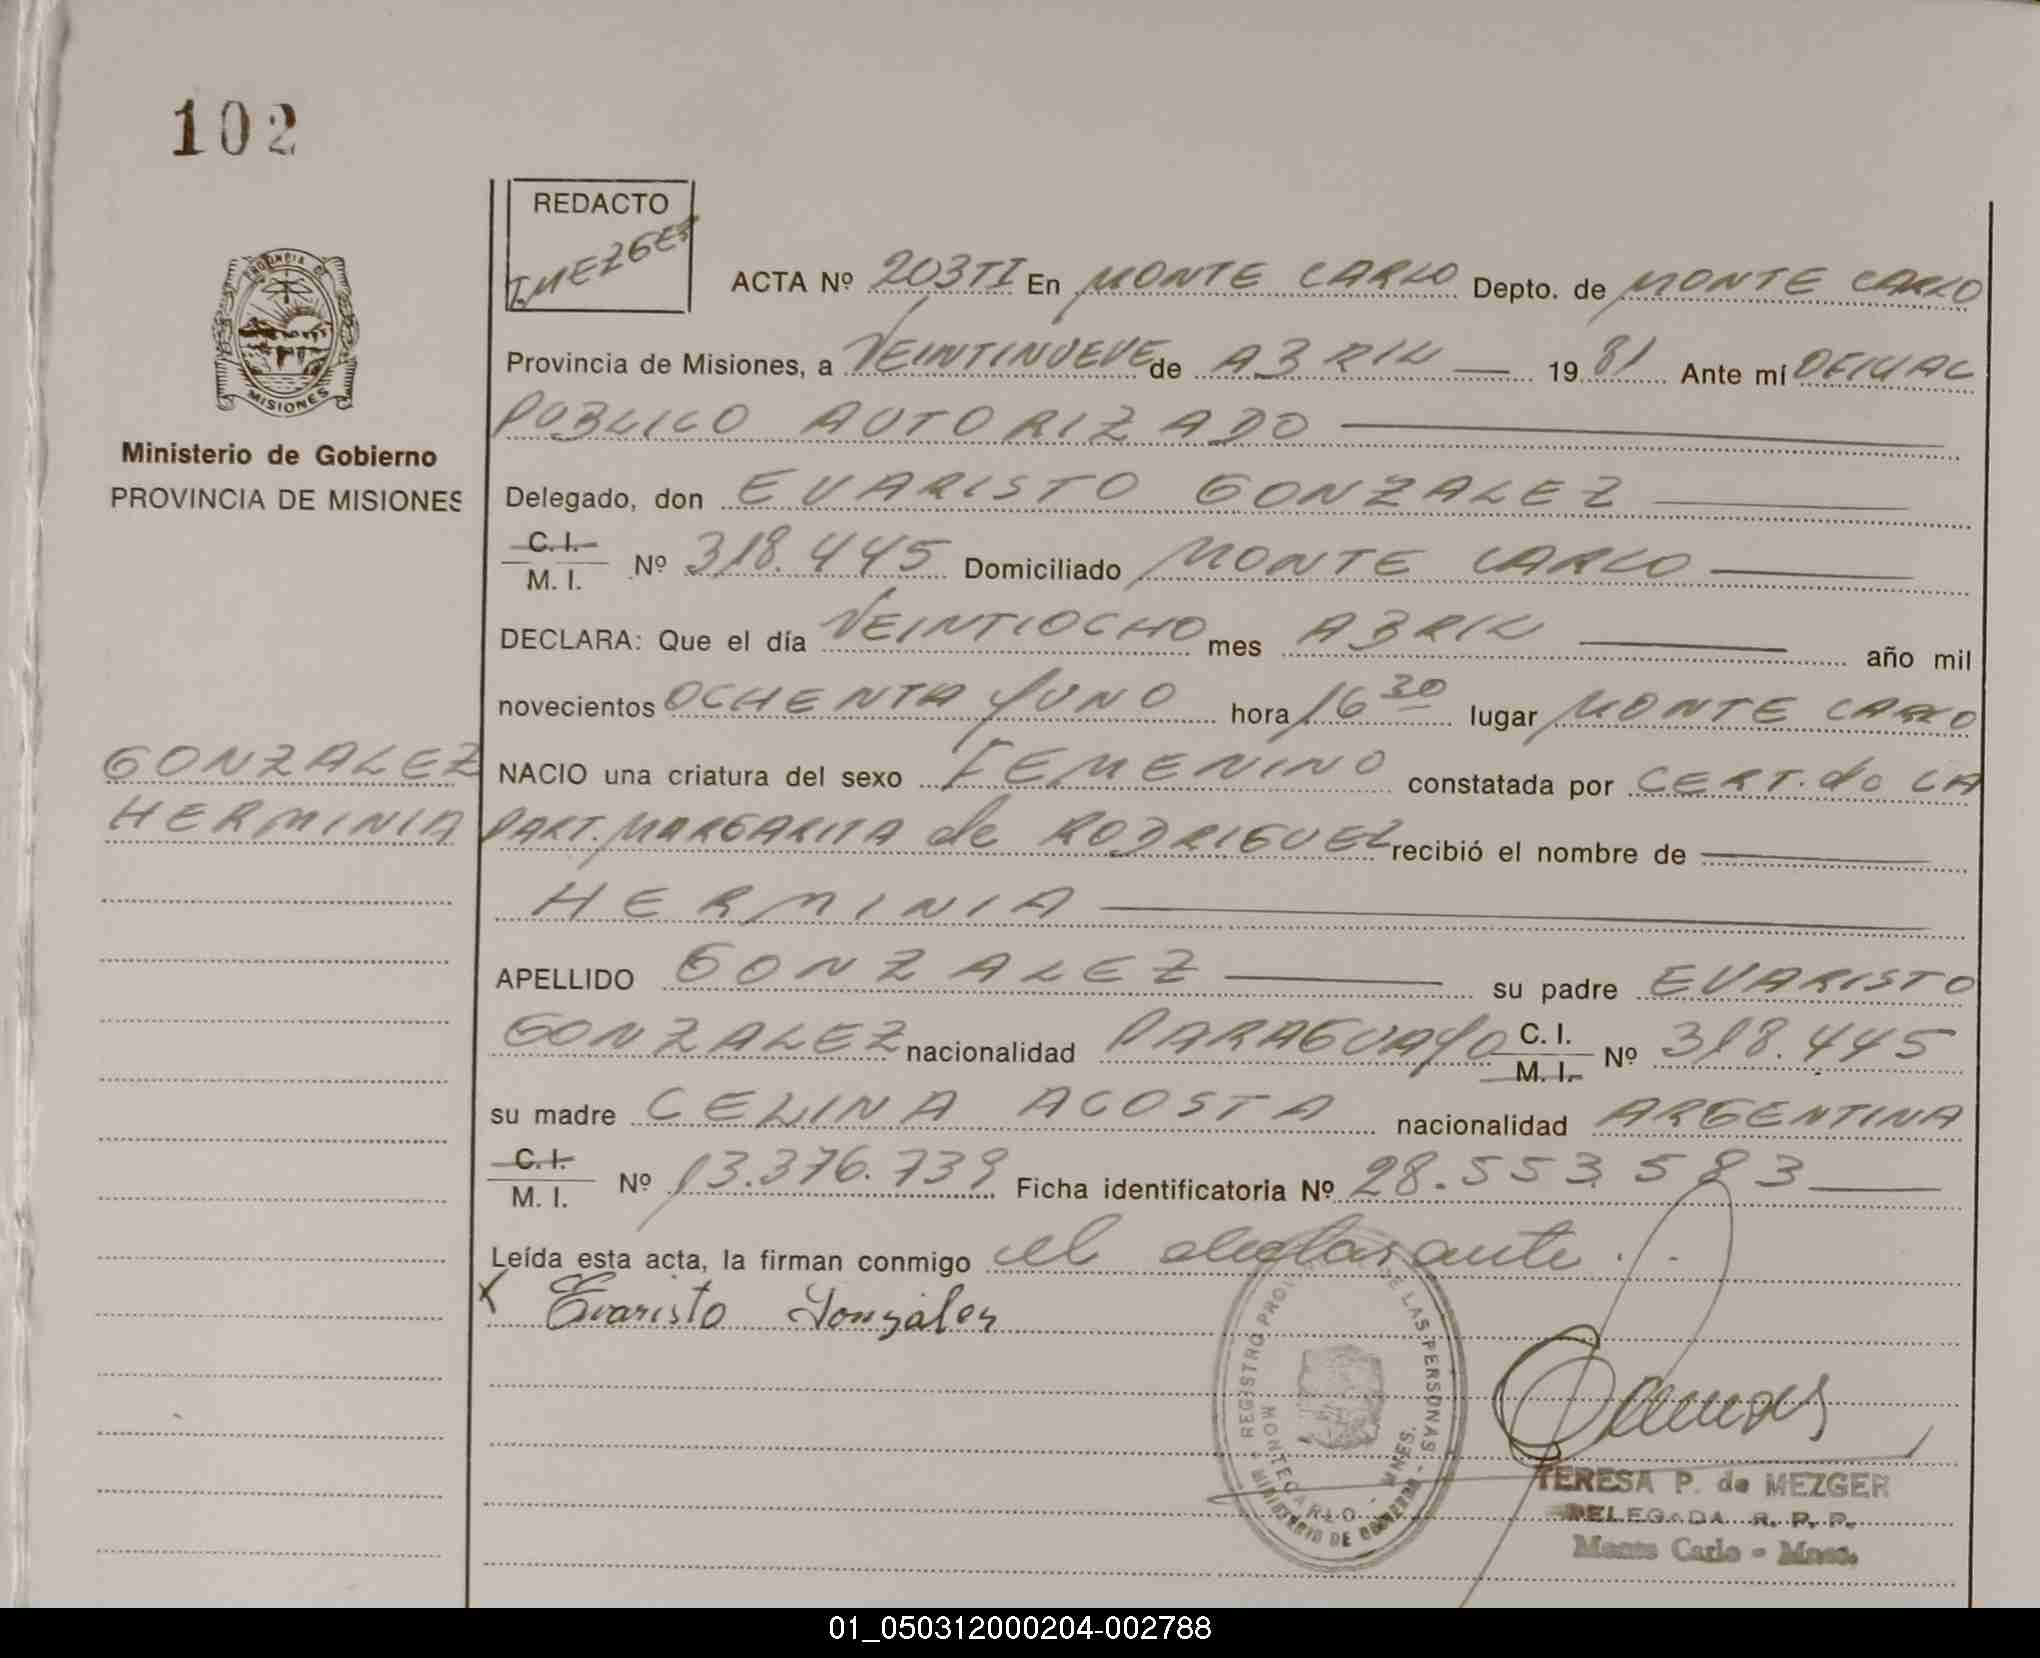 102
REDACTO
T.MEZGER
ACTA Nº 203TI En MONTE CARLO Depto. de MONTE CARLO
Provincia de Misiones, a VEINTINUEVE de ABRIL 1981 Ante mí OFICIAL
PUBLICO AUTORIZADO
PROVINCIA DE
MISIONES
Ministerio de Gobierno
PROVINCIA DE MISIONES
Delegado, don EVARISTO GONZALEZ
C. I.
M. I. Nº 318.445 Domiciliado MONTE CARLO
DECLARA: Que el día VEINTIOCHO mes ABRIL año mil
novecientos OCHENTA Y UNO hora 16 30 lugar MONTE CARLO
GONZALEZ
HERMINIA
NACIO una criatura del sexo FEMENINO constatada por CERT. de LA
PART. MARGARITA de RODRIGUEZ recibió el nombre de
HERMINIA
APELLIDO GONZALEZ su padre EVARISTO
GONZALEZ nacionalidad PARAGUAYO C. I. Nº 318.445
M. I.
su madre CELINA ACOSTA nacionalidad ARGENTINA
C. I.
M. I. Nº 13.376.739 Ficha identificatoria Nº 28.553.583
Leída esta acta, la firman conmigo el declarante.
X Evaristo Gonzalez
REGISTRO PRO DE LAS PERSONAS
MONTECARLO - MNES.
MINISTERIO DE GOBIERNO
TERESA P. de MEZGER
DELEGADA R. P. P.
Monte Carlo - Mnes.
01_050312000204-002788